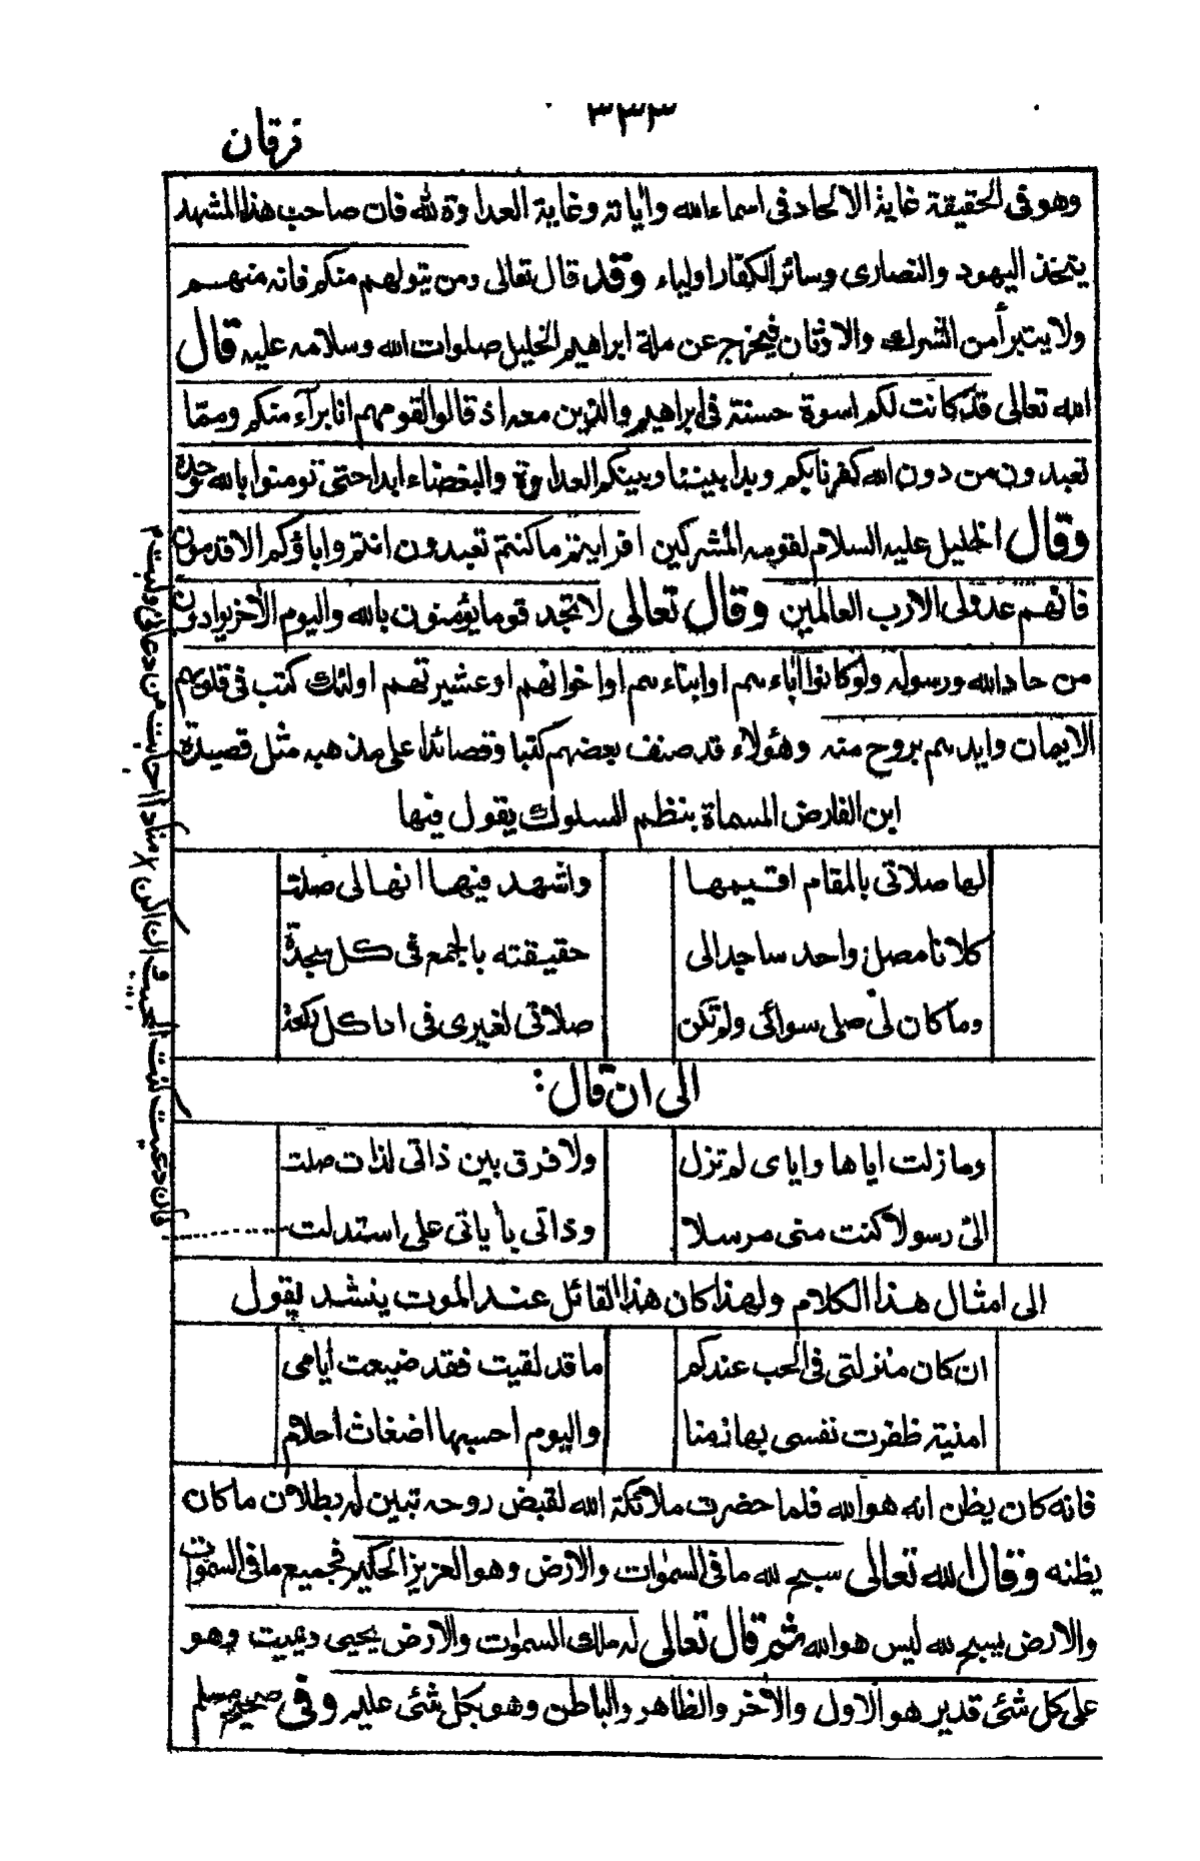 ٣٣٣
فرقان
وهو فى الحقيقة غاية الالحاد فى اسماء الله واٰياته وغاية العداوة لله فان صاحب هذا المشهد
يتخذ اليهود والنصارى وسائر الكفار اولياء وقد قال تعالى ومن يتولهم منكم فانه منهم
ولا يتبرأ من الشرك والاوثان فيخرج عن ملة ابراهيم الخليل صلوات الله وسلامه عليه قال
الله تعالى قد كانت لكم اسوة حسنة فى ابراهيم والذين معه اذ قالوا لقومهم انا برآء منكم ومما
تعبدون من دون الله كفرنا بكم وبدا بيننا وبينكم العداوة والبغضاء ابدا حتى تومنوا بالله وحده
وقال الخليل عليه السلام لقومه المشركين افرايتم ما كنتم تعبدون انتم واباؤكم الاقدمون
فانهم عدولى الا رب العالمين وقال تعالى لا تجد قوما يؤمنون بالله واليوم الاٰخر يوادون
من حاد الله ورسوله ولو كانوا اٰباءهم او ابناءهم او اخوانهم او عشيرتهم اولئك كتب فى قلوبهم
الايمان وايدهم بروح منه وهؤلاء قد صنف بعضهم كتبا وقصائدا على مذهبه مثل قصيدة
ابن الفارض المسماة بنظم السلوك يقول فيها
لها صلاتى بالمقام اقيمها واشهد فيها انها لى صلت
كلانا مصل واحد ساجد الى حقيقته بالجمع فى كل سجدة
وما كان لى صلى سوائى ولم تكن صلاتى لغيرى فى ادا كل ركعة
الى ان قال :
وما زلت اياها واياى لم تزل ولا فرق بين ذاتى لذات صلت
الىّ رسولا كنت منى مرسلا وذاتى بأياتى على استدلت
فان دعيت كنت المجيب وان اكن منادا اجابت من دعانى ولبيت
الى امثال هذا الكلام ولهذا كان هذا القائل عند الموت ينشد يقول
ان كان منزلتى فى الحب عندكم ما قد لقيت فقد ضيعت أيامى
امنية ظفرت نفسى بها زمنا واليوم احسبها اضغاث أحلام
فانه كان يظن انه هو الله فلما حضرت ملائكة الله لقبض روحه تبين له بطلان ما كان
يظنه وقال الله تعالى سبح لله ما فى السمٰوات والارض وهو العزيز الحكيم فجميع ما فى السمٰوات
والارض يسبح لله ليس هو الله ثم قال تعالى له ملك السمٰوت والارض يحيى ويميت وهو
على كل شئ قدير هو الاول والاٰخر والظاهر والباطن وهو بكل شئ عليم وفى صحيح مسلم